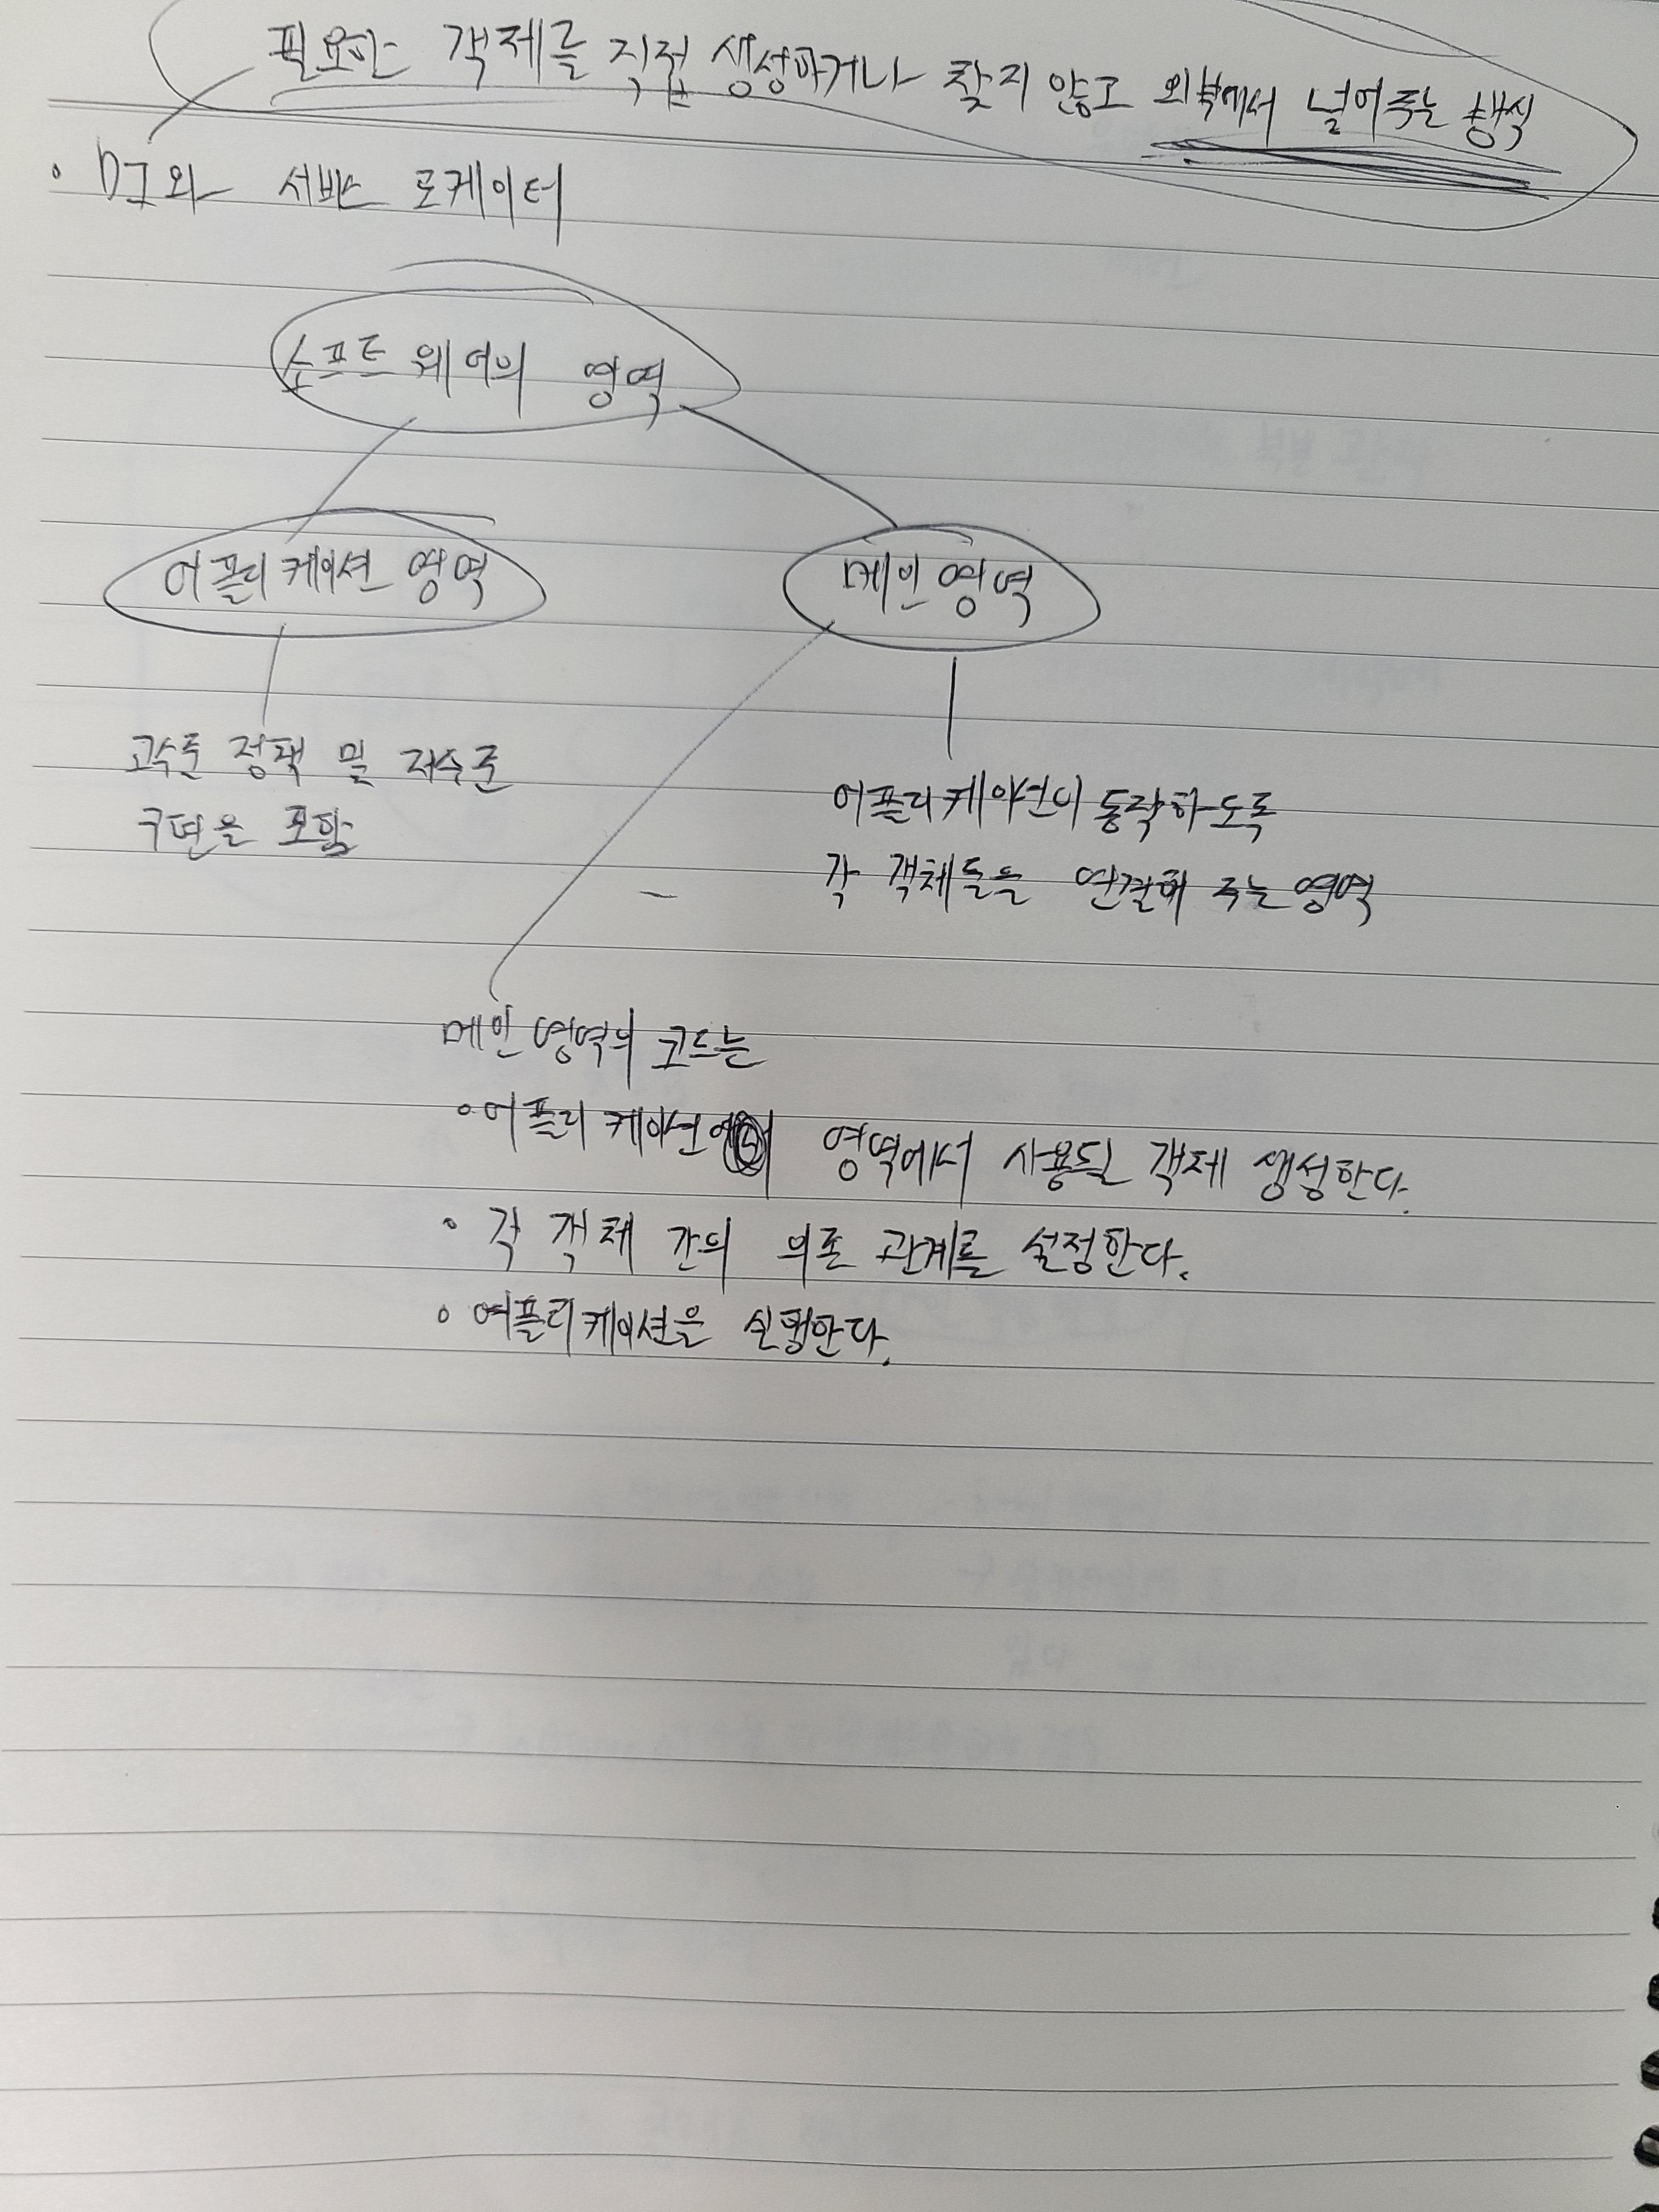 필요한 객체를 직접 생성하거나 찾지 않고 외부에서 넣어주는 방식
• DI와 서비스 로케이터
소프트웨어의 영역
어플리케이션 영역
메인 영역
고수준 정책 및 저수준
구현을 포함
어플리케이션이 동작하도록
각 객체들을 연결해 주는 영역
메인 영역의 코드는
• 어플리케이션 영역에서 사용될 객체 생성한다.
• 각 객체 간의 의존 관계를 설정한다.
• 어플리케이션을 실행한다.